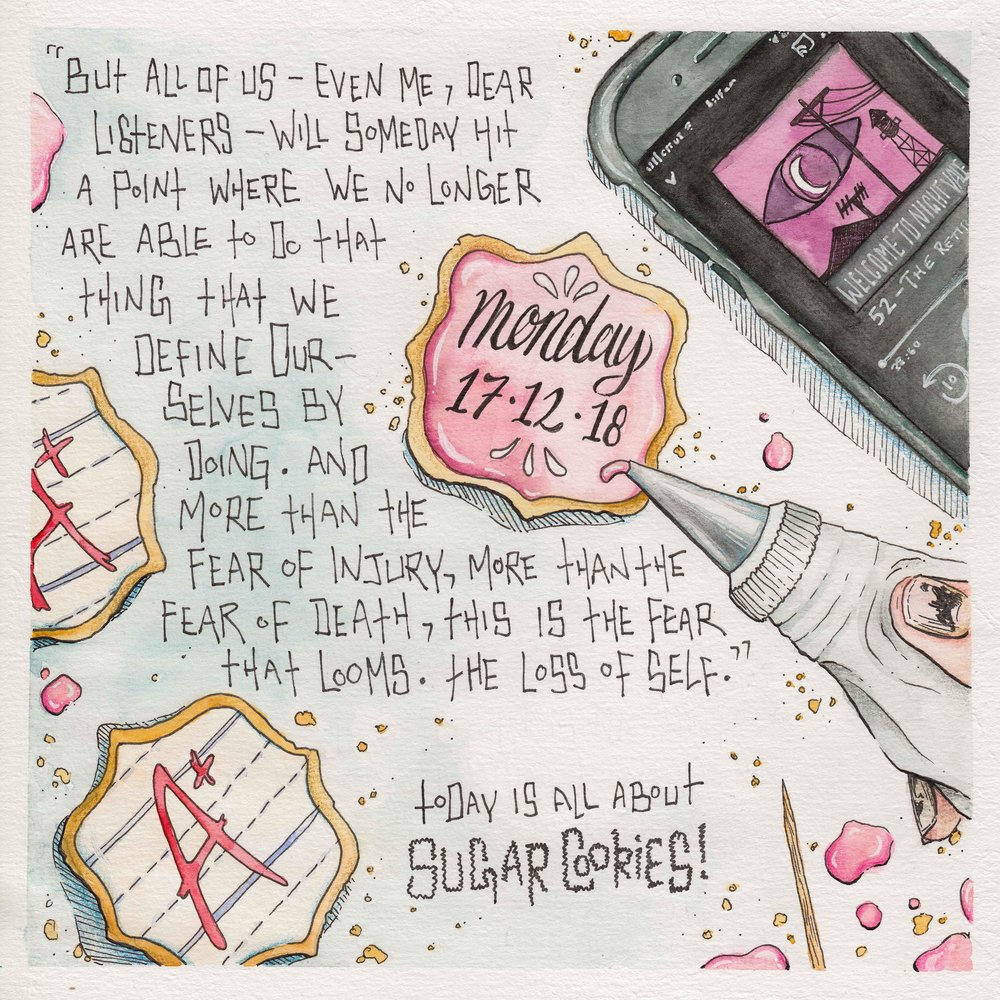 "But all of us – even me, dear
listeners – will someday hit
a point where we no longer
are able to do that
thing that we
define our-
selves by
doing. And
more than the
fear of injury, more than the
fear of death, this is the fear
that looms. The loss of self."
Monday
17·12·18
WELCOME TO NIGHT VALE
52–The Retu
28:60
10
A+
A+
today is all about
SUGAR COOKIES!